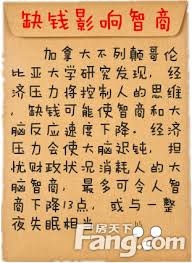 缺钱影响智商
加拿大不列颠哥伦
比亚大学研究发现，经
济压力将控制人的思维，
缺钱可能使智商和大
脑反应速度下降，经济
压力会使大脑迟钝，担
忧财政状况消耗人的大
脑智商，最多可令人智
商下降13点，或与一整
夜失眠相当
房天下
Fang.com